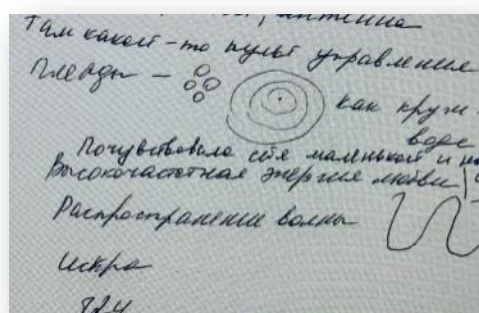 антенна
Там какой-то пульт управления
Плеяды — как круж
воде
Почувствовала себя маленькой и
Высокочастотная энергия любви
Распространение волны
Искра